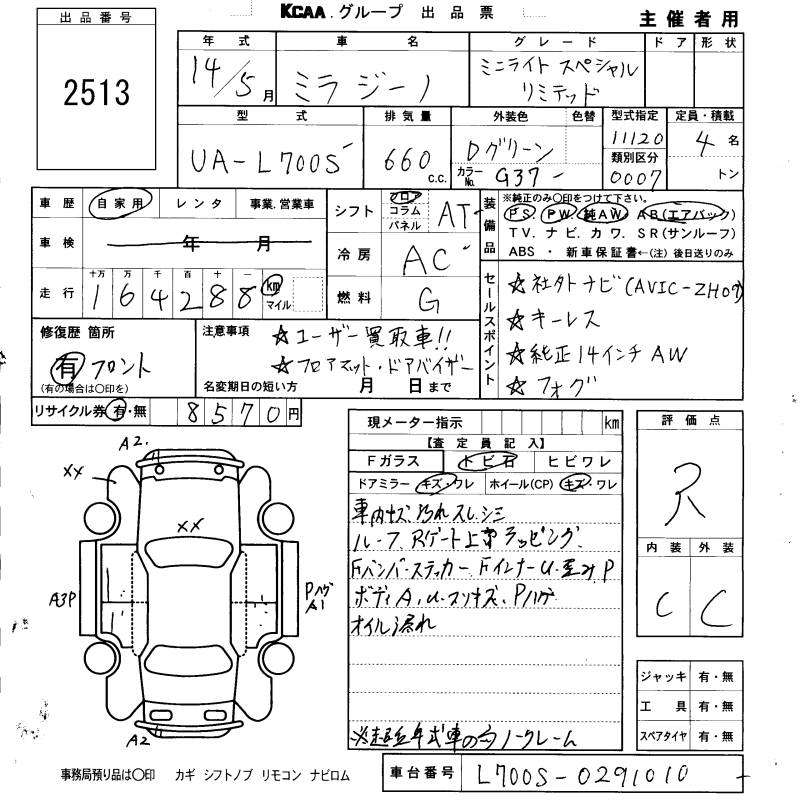 KCAA.グループ 出品票
主催者用
出品番号
2513
年式 車名 グレード ドア 形状
14/5月 ミラジーノ ミニライト スペシャル
リミテッド
型式 排気量 外装色 色替 型式指定 定員・積載
UA-L700S 660 c.c. Dグリーン 11120 4名
カラーNo. G37 類別区分 0007 トン
車歴 自家用 レンタ 事業.営業車
車検 年 月
走行 十万 万 千 百 十 一
164288 km マイル
シフト フロア コラム パネル AT
冷房 AC
燃料 G
装備品 ※純正のみ〇印をつけて下さい。
PS. PW. 純AW. AB(エアバック)
TV. ナビ. カワ. SR(サンルーフ)
ABS ・ 新車保証書←(注)後日送りのみ
セールスポイント
☆社外ナビ(AVIC-ZH07)
☆キーレス
☆純正14インチAW
☆フォグ
修復歴 箇所
有 フロント
(有の場合は〇印を)
注意事項 ☆ユーザー買取車!!
☆フロアマット・ドアバイザー
名変期日の短い方 月 日まで
リサイクル券 有・無 8570円
現メーター指示 km
【査定員記入】
Fガラス トビ石 ヒビワレ
ドアミラー キズ・ワレ ホイール(CP) キズ・ワレ
車内キズ.汚れ スレ.シミ
ルーフ.Rゲート上部ラッピング.
Fバンパーステッカー. FインナーU.歪み P
ボディA.U.スリキズ. Pハゲ
オイル漏れ
※超低年式車の為ノークレーム
評価点
R
内装 外装
C C
A2.
XX
XX
A3P
Pハゲ
A1
A2
ジャッキ 有・無
工具 有・無
スペアタイヤ 有・無
事務局預り品は〇印 カギ シフトノブ リモコン ナビロム
車台番号 L700S-0291010